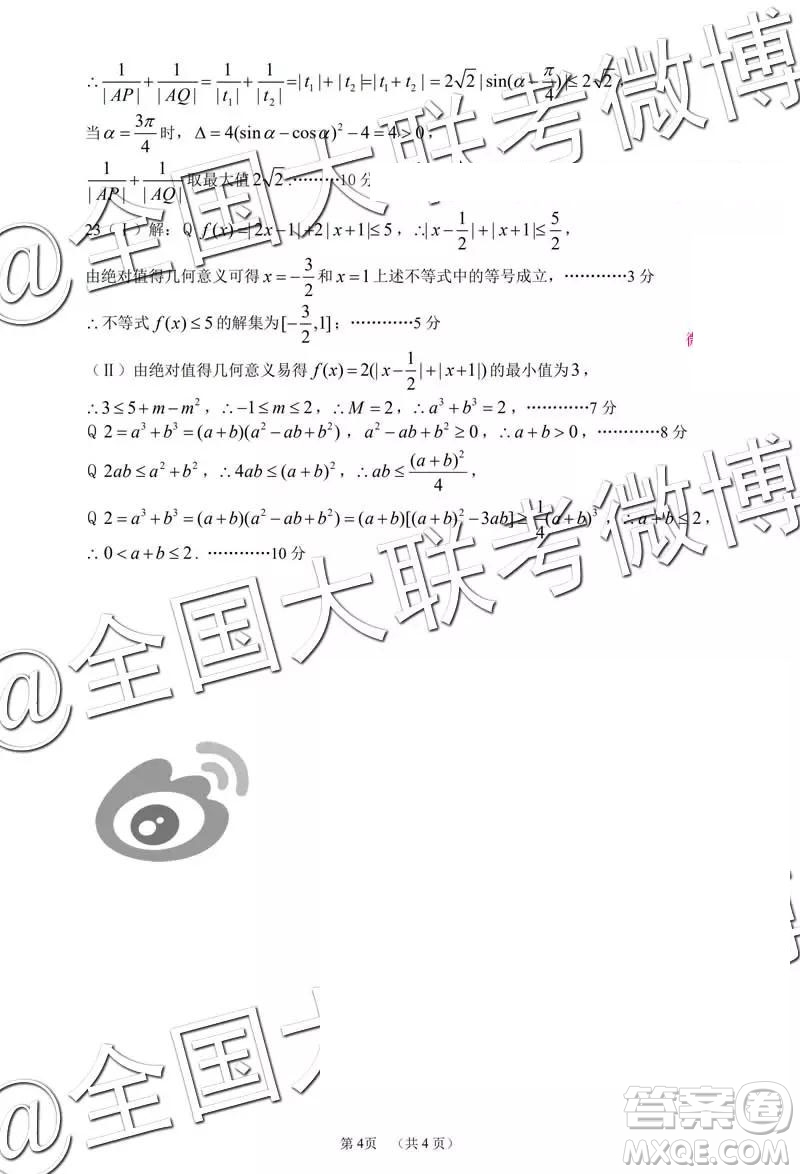 ∴ 1/|AP| + 1/|AQ| = 1/|t₁| + 1/|t₂| = |t₁|+|t₂|=|t₁+t₂| = 2√2 |sin(α − π/4)| ≤ 2√2 ,
当 α = 3π/4 时，Δ = 4(sin α − cos α)² − 4 = 4 > 0 ，
1/|AP| + 1/|AQ| 取最大值 2√2 .………10 分
23（Ⅰ）解：Q f(x) =|2x−1|+2|x+1|≤ 5 ，∴|x − 1/2| + |x+1|≤ 5/2 ，
由绝对值得几何意义可得 x = −3/2 和 x = 1 上述不等式中的等号成立，…………3 分
∴ 不等式 f(x) ≤ 5 的解集为 [−3/2 ,1] ；…………5 分
（Ⅱ）由绝对值得几何意义易得 f(x) = 2(|x − 1/2| + |x+1|) 的最小值为 3 ，
∴ 3 ≤ 5 + m − m² ，∴ −1 ≤ m ≤ 2 ，∴ M = 2 ，∴ a³ + b³ = 2 ，…………7 分
Q 2 = a³ + b³ = (a+b)(a² − ab + b²) ，a² − ab + b² ≥ 0 ，∴ a + b > 0 ，…………8 分
Q 2ab ≤ a² + b² ，∴ 4ab ≤ (a+b)² ，∴ ab ≤ (a+b)²/4 ，
Q 2 = a³ + b³ = (a+b)(a² − ab + b²) = (a+b)[(a+b)² − 3ab] ≥ 1/4 (a+b)³ ，∴ a + b ≤ 2 ，
∴ 0 < a + b ≤ 2 . …………10 分
@全国大联考微博
@全国大联考微博
@全国大
第 4页 （共 4 页）
答案卷
MXQE.COM